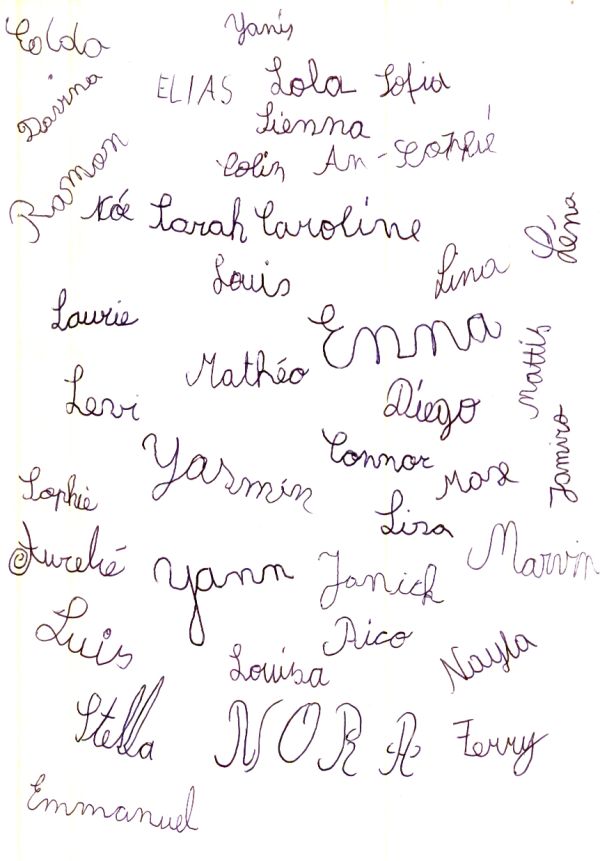 Yanis
Davina
ELIAS Lola Sofia
Sienna
Ramon
Colin An-Sophie
Noé Sarah Caroline
Léna
Louis
Lina
Laurie
Enna
Mattis
Mathéo
Levi
Diego
Yasmin
Connor
Max
Jamiro
Sophie
Lisa
Aurelié
Yann
Janick
Marvin
Luis
Rico
Louisa
Nayla
Stella
NORA
Ferry
Emmanuel